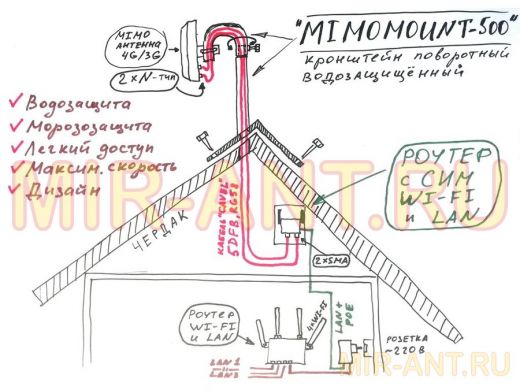 "MIMOMOUNT-500"
кронштейн поворотный
водозащищённый
MIMO
АНТЕННА
4G/3G
2×N-тип
✓ Водозащита
✓ Морозозащита
✓ Легкий доступ
✓ Максим. скорость
✓ Дизайн
РОУТЕР
с СИМ
WI-FI
и LAN
MIR-ANT.RU
ЧЕРДАК
КАБЕЛЬ "CAVEL"
5DFB, RG58
2×SMA
РОУТЕР
WI-FI
и LAN
4×WI-FI
LAN +
POE
РОЗЕТКА
~220В
LAN1
LAN3
MIR-ANT.RU